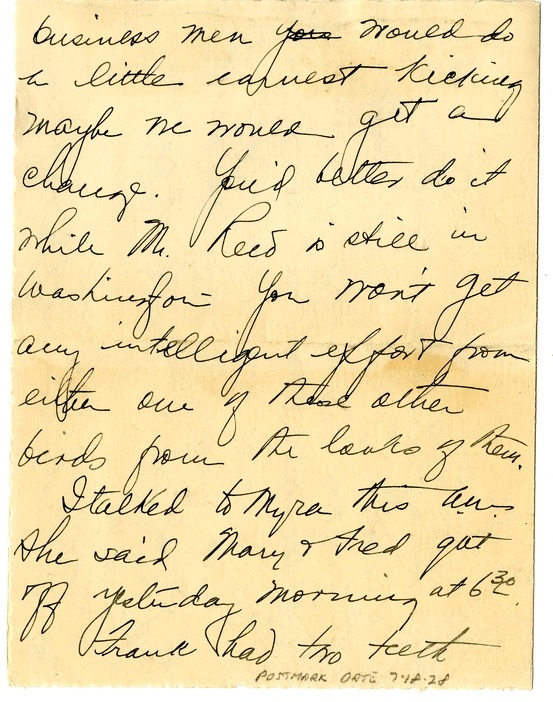 business men <s>you</s> would do
a little earnest kicking
maybe we would get a
change. You'd better do it
while M. Reed is still in
Washington You won't get
any intelligent effort from
either one of those other
birds from the looks of them.
I talked to Myra this a.m.
She said Mary & Fred got
off yesterday morning at 6 30
Frank had two teeth
POSTMARK DATE 7-18-28